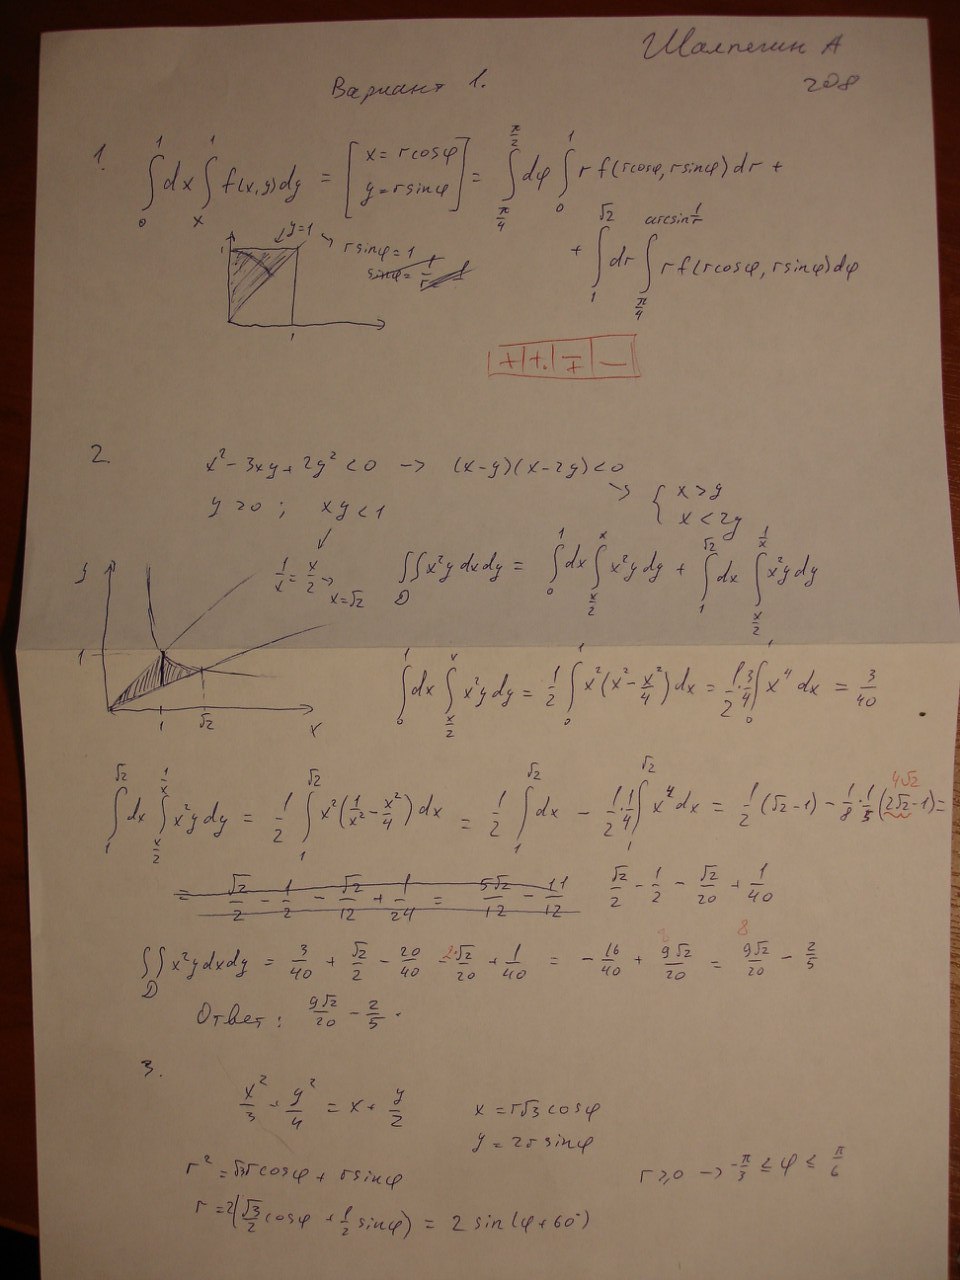 Шалпегин А
208
Вариант 1.
1. ∫₀¹ dx ∫ₓ¹ f(x,y)dy = [x = r cosφ, y = r sinφ] = ∫_{π/4}^{π/2} dφ ∫₀¹ r f(r cosφ, r sinφ) dr +
y=1 → r sinφ = 1
sinφ = 1/r
+ ∫₁^{√2} dr ∫_{π/4}^{arcsin 1/r} r f(r cosφ, r sinφ) dφ
1
1
+ | +. | ∓ | −
2. x² - 3xy + 2y² < 0 → (x-y)(x-2y) < 0
y > 0 ; xy < 1
{ x > y
x < 2y
1/x = x/2 → x = √2
∬_D x²y dxdy = ∫₀¹ dx ∫_{x/2}^{x} x²y dy + ∫₁^{√2} dx ∫_{x/2}^{1/x} x²y dy
y
1
1 √2 x
∫₀¹ dx ∫_{x/2}^{x} x²y dy = 1/2 ∫₀¹ x²(x² - x²/4) dx = 1/2 · 3/4 ∫₀¹ x⁴ dx = 3/40
4√2
∫₁^{√2} dx ∫_{x/2}^{1/x} x²y dy = 1/2 ∫₁^{√2} x²(1/x² - x²/4) dx = 1/2 ∫₁^{√2} dx - 1/2 · 1/4 ∫₁^{√2} x⁴ dx = 1/2 (√2 - 1) - 1/8 · 1/5 (2√2 - 1) =
= √2/2 - 1/2 - √2/12 + 1/24 = 5√2/12 - 11/12 √2/2 - 1/2 - √2/20 + 1/40
8 8
∬_D x²y dxdy = 3/40 + √2/2 - 20/40 - 2·√2/20 + 1/40 = - 16/40 + 9√2/20 = 9√2/20 - 2/5
Ответ: 9√2/20 - 2/5.
3.
x²/3 + y²/4 = x + y/2
x = r√3 cosφ
y = 2r sinφ
r² = √3 r cosφ + r sinφ
r ≥ 0 → -π/3 ≤ φ ≤ π/6
r = 2(√3/2 cosφ + 1/2 sinφ) = 2 sin(φ + 60°)